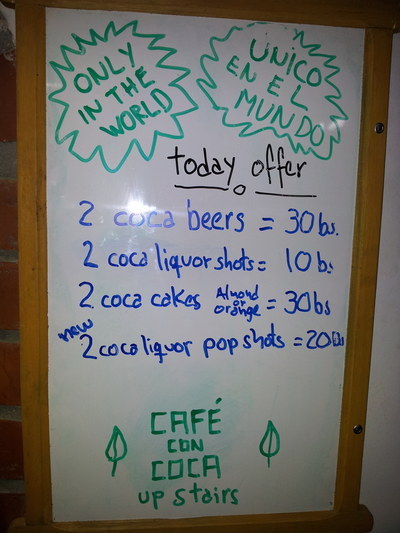 ONLY
IN THE
WORLD
UNICO
EN EL
MUNDO
today offer
2 coca beers = 30 bs.
2 coca liquor shots = 10 bs
2 coca cakes Almond or orange = 30 bs
new
2 coca liquor pop shots = 20 bs
CAFÉ
CON
COCA
up stairs